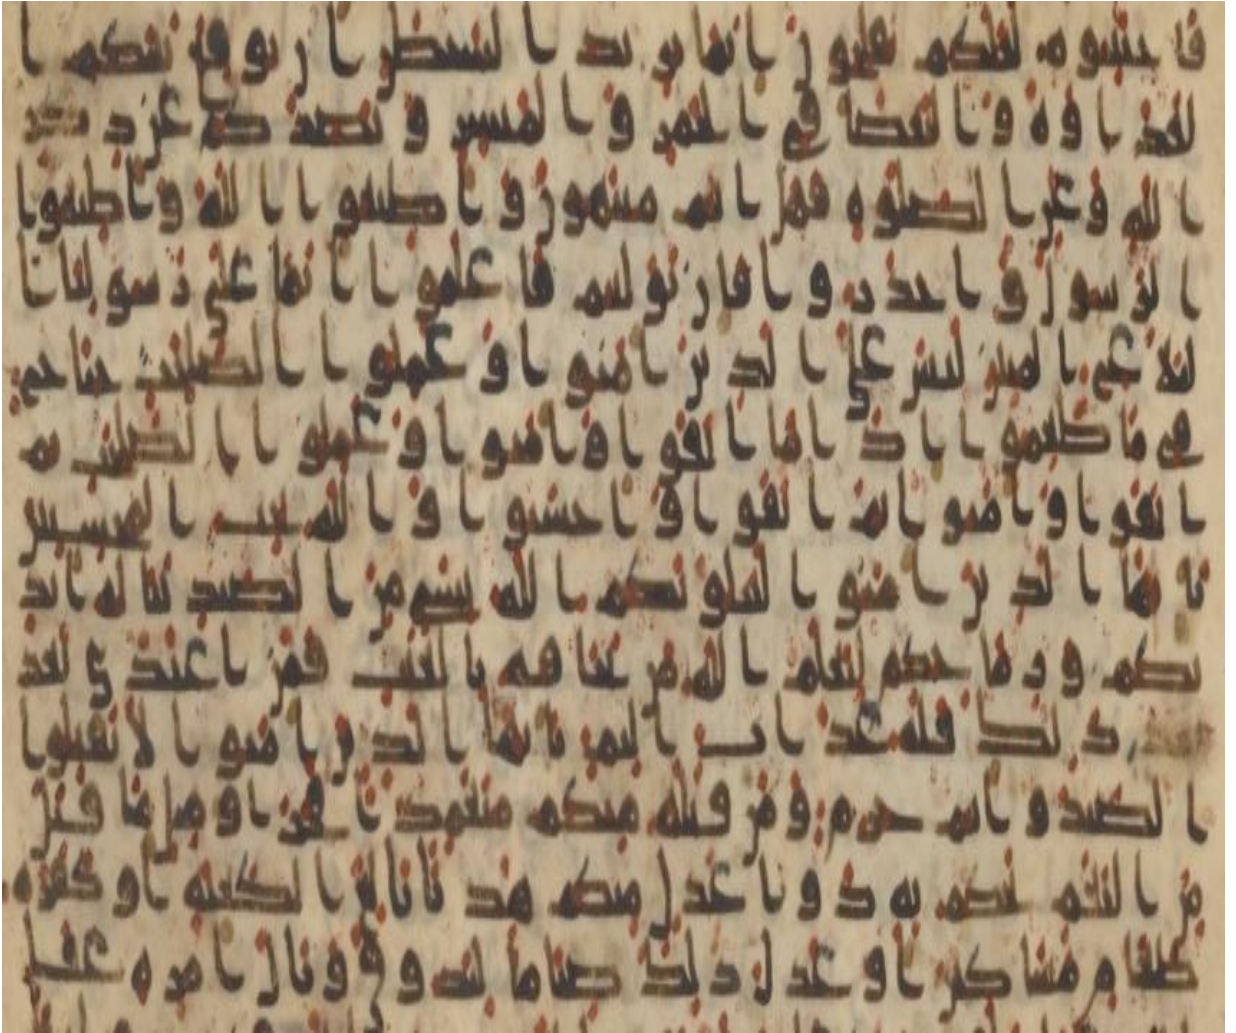 فاجتنبوه لعلكم تفلحون انما يريد الشيطن ان يوقع بينكم ا
لعدوة والبغضا في الخمر والميسر ويصدكم عن ذكر
الله وعن الصلوة فهل انتم منتهون واطيعوا الله واطيعوا
الرسول واحذروا فان توليتم فاعلموا انما على رسولنا ا
لبلغ المبين ليس على الذين امنوا وعملوا الصلحت جناح
فيما طعموا اذا ما اتقوا وامنوا وعملوا الصلحت ثم
اتقوا وامنوا ثم اتقوا واحسنوا والله يحب المحسنين
يايها الذين امنوا ليبلونكم الله بشي من الصيد تناله ايد
يكم ورماحكم ليعلم الله من يخافه بالغيب فمن اعتدى بعد
ذلك فله عذاب اليم يايها الذين امنوا لا تقتلوا
الصيد وانتم حرم ومن قتله منكم متعمدا فجزا مثل ما قتل
من النعم يحكم به ذوا عدل منكم هديا بلغ الكعبة او كفرة
طعام مسكين او عدل ذلك صياما ليذوق وبال امره عفا